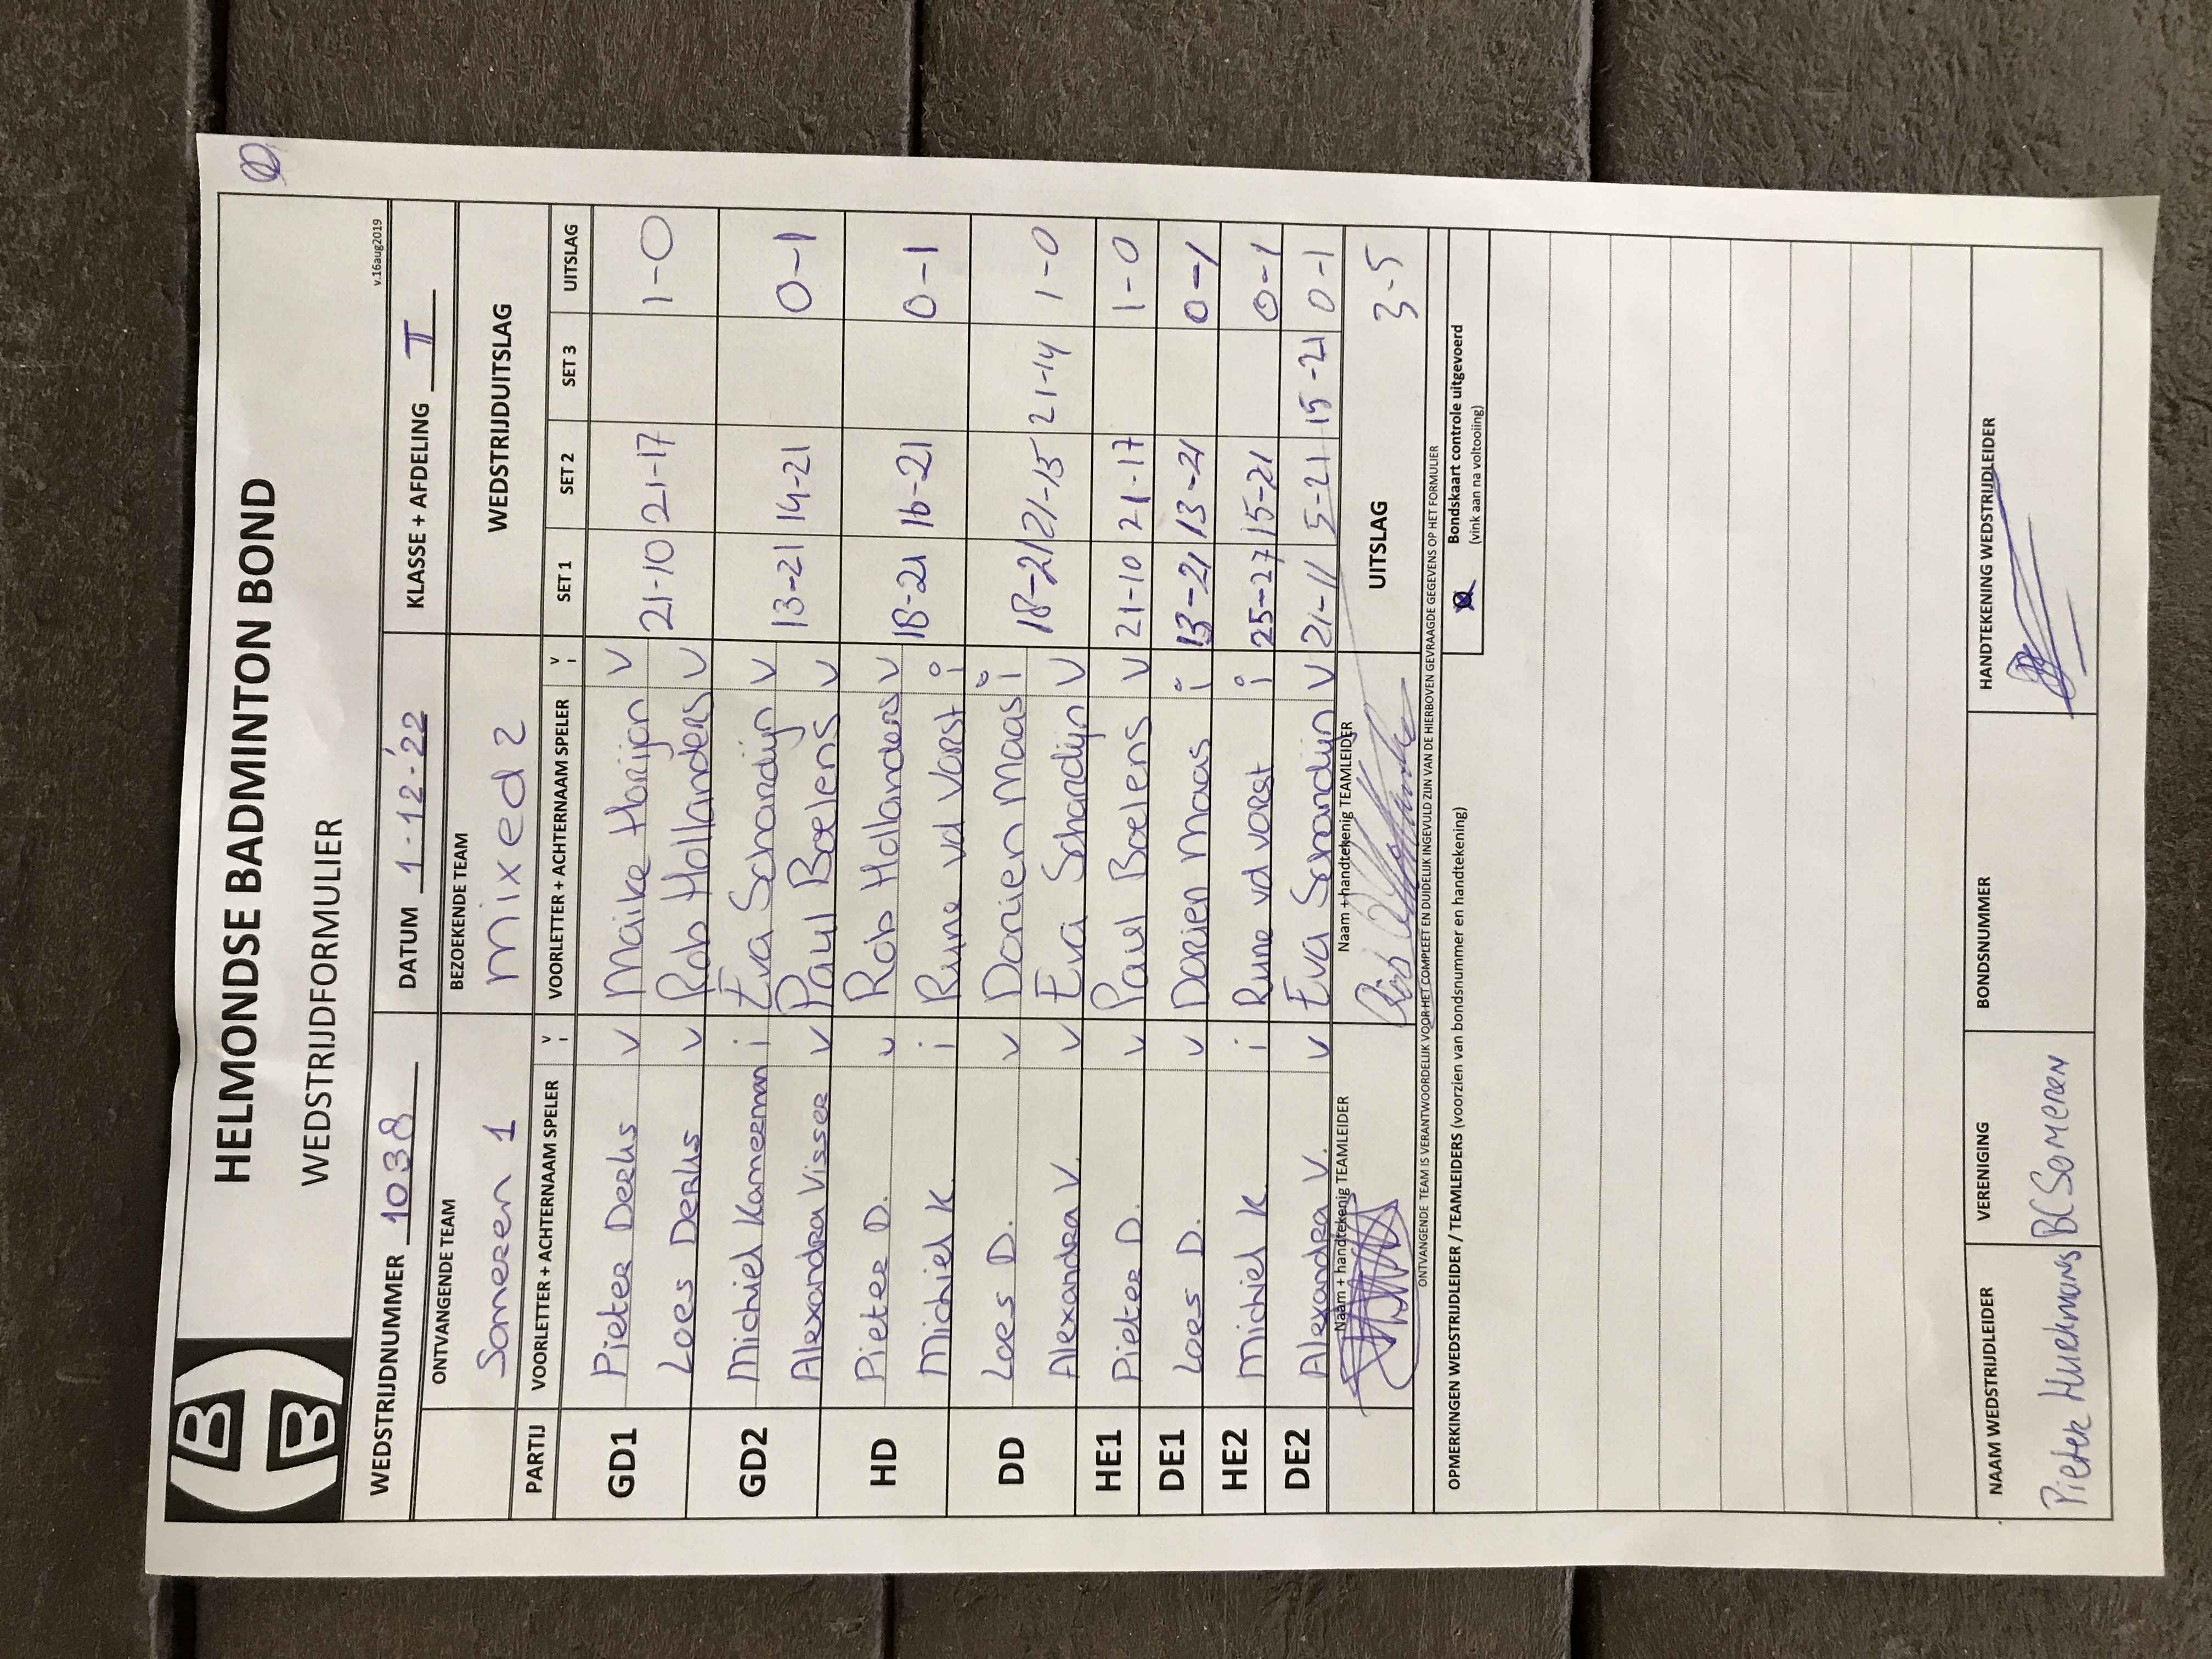 HELMONDSE BADMINTON BOND
WEDSTRIJDFORMULIER
v.16aug2019
WEDSTRIJDNUMMER 1038 DATUM 1-12-'22 KLASSE + AFDELING II
ONTVANGENDE TEAM BEZOEKENDE TEAM WEDSTRIJDUITSLAG
Someren 1 Mixed 2
PARTIJ VOORLETTER + ACHTERNAAM SPELER V I VOORLETTER + ACHTERNAAM SPELER V I SET 1 SET 2 SET 3 UITSLAG
GD1 Pieter Derks v Maike Harijan v
Loes Derks v Rob Hollanders v 21-10 21-17 1-0
GD2 Michiel Kameerman i Eva Schardijn v
Alexandra Visser v Paul Boelens v 13-21 14-21 0-1
HD Pieter D. v Rob Hollanders v
Michiel K. i Rune vd Vorst i 18-21 16-21 0-1
DD Loes D. v Dorien Maas i
Alexandra V. v Eva Schardijn v 18-21 21-15 21-14 1-0
HE1 Pieter D. v Paul Boelens v 21-10 21-17 1-0
DE1 Loes D. v Dorien Maas i 13-21 13-21 0-1
HE2 Michiel K. i Rune vd Vorst i 25-27 15-21 0-1
DE2 Alexandra V. v Eva Schardijn v 21-11 5-21 15-21 0-1
Naam + handtekenig TEAMLEIDER Naam + handtekenig TEAMLEIDER UITSLAG 3-5
ONTVANGENDE TEAM IS VERANTWOORDELIJK VOOR HET COMPLEET EN DUIDELIJK INGEVULD ZIJN VAN DE HIERBOVEN GEVRAAGDE GEGEVENS OP HET FORMULIER
OPMERKINGEN WEDSTRIJDLEIDER / TEAMLEIDERS (voorzien van bondsnummer en handtekening)
Bondskaart controle uitgevoerd
(vink aan na voltooiing)
NAAM WEDSTRIJDLEIDER VERENIGING BONDSNUMMER HANDTEKENING WEDSTRIJDLEIDER
Pieter Huekmans BC Someren